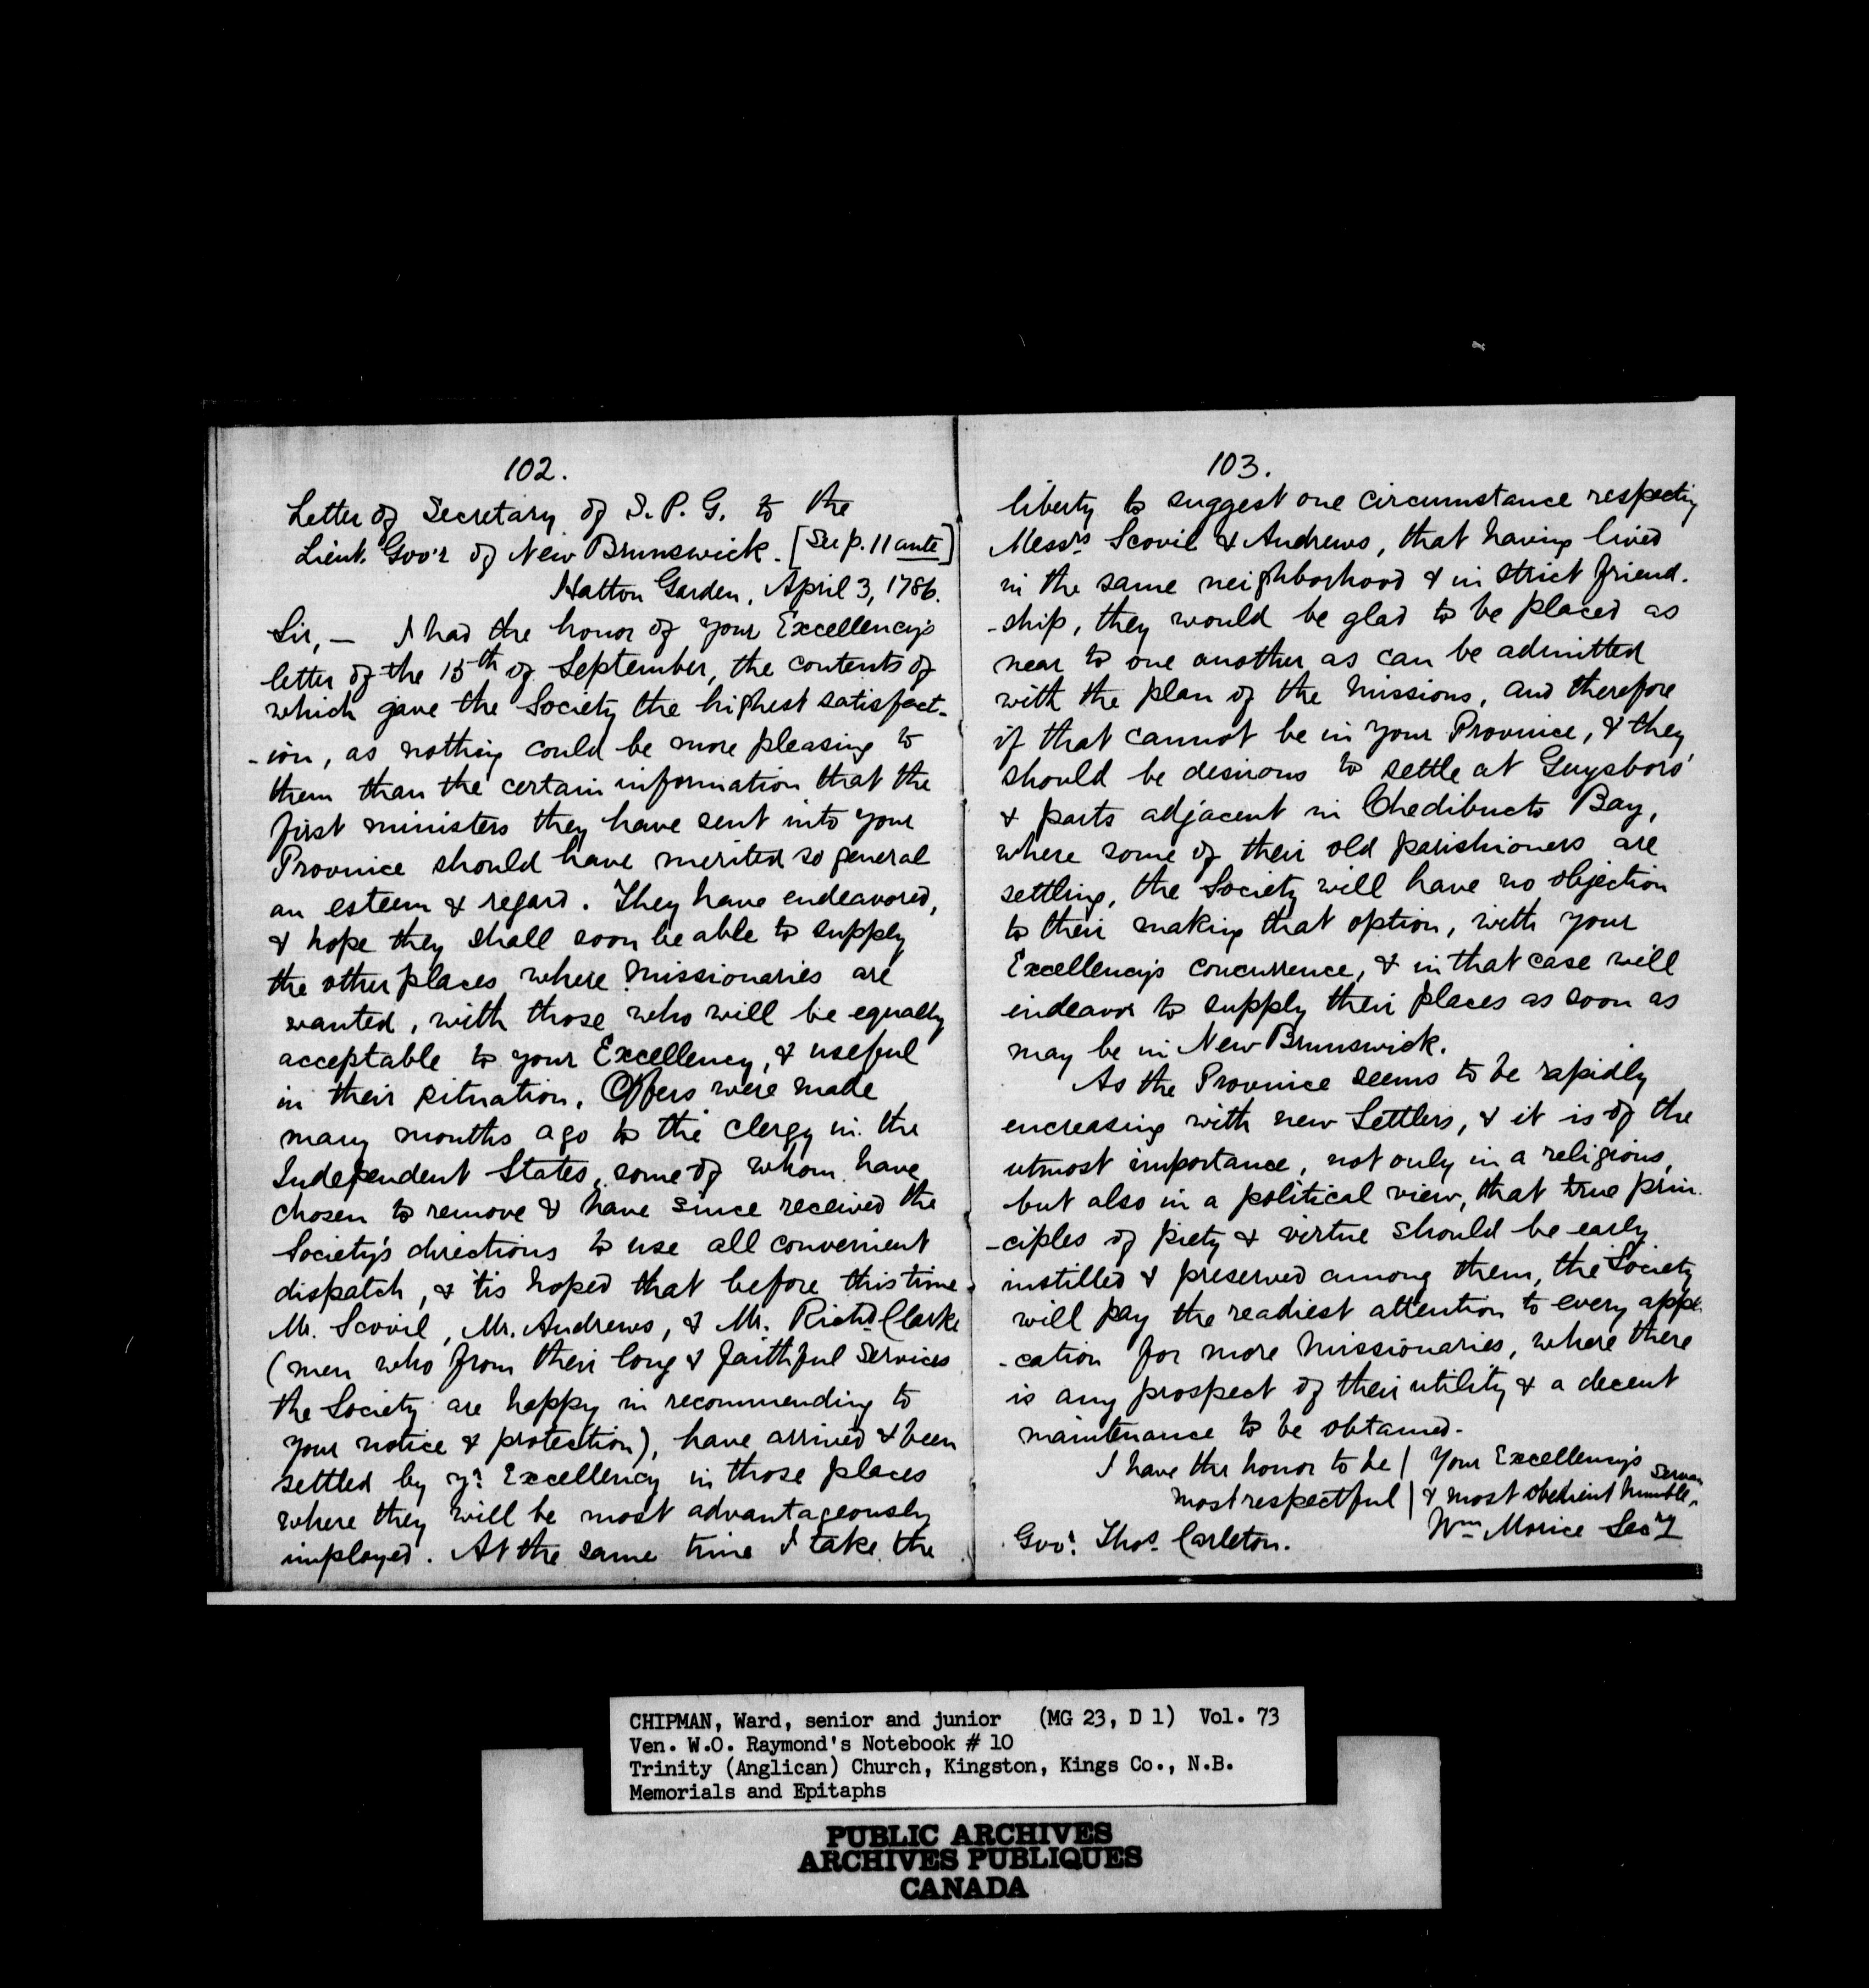 102.
Letter of Secretary of S. P. G. to the
Lieut. Gov'r of New Brunswick. [See p. 11 ante]
Hatton Garden, April 3, 1786.
Sir, — I had the honor of your Excellency's
letter of the 15th of September, the contents of
which gave the Society the highest satisfact-
-ion, as nothing could be more pleasing to
them than the certain information that the
first ministers they have sent into your
Province should have merited so general
an esteem & regard. They have endeavored,
& hope they shall soon be able to supply
the other places where Missionaries are
wanted, with those who will be equally
acceptable to your Excellency, & useful
in their situation. Offers were made
many months ago to the clergy in the
Independent States, some of whom have
chosen to remove & have since received the
Society's directions to use all convenient
dispatch, & 'tis hoped that before this time
Mr. Scovil, Mr. Andrews, & Mr. Richd Clarke
(men who from their long & faithful services
the Society are happy in recommending to
your notice & protection), have arrived & been
settled by yr Excellency in those places
where they will be most advantageously
imployed. At the same time I take the
103.
liberty to suggest one circumstance respecting
Messrs Scovil & Andrews, that having lived
in the same neighborhood & in strict friend-
-ship, they would be glad to be placed as
near to one another as can be admitted
with the plan of the Missions, and therefore
if that cannot be in your Province, & they
should be desirous to settle at Guysboro'
& parts adjacent in Chedibucto Bay,
where some of their old parishioners are
settling, the Society will have no objection
to their making that option, with your
Excellency's concurrence, & in that case will
endeavor to supply their places as soon as
may be in New Brunswick.
As the Province seems to be rapidly
encreasing with new Settlers, & it is of the
utmost importance, not only in a religious,
but also in a political view, that true prin-
-ciples of piety & virtue should be early
instilled & preserved among them, the Society
will pay the readiest attention to every appli-
-cation for more Missionaries, where there
is any prospect of their utility & a decent
maintenance to be obtained.
I have the honor to be | Your Excellency's
most respectful | & most obedient humble servan
Wm Morice Secry
Govr. Thos. Carleton.
CHIPMAN, Ward, senior and junior (MG 23, D 1) Vol. 73
Ven. W.O. Raymond's Notebook # 10
Trinity (Anglican) Church, Kingston, Kings Co., N.B.
Memorials and Epitaphs
PUBLIC ARCHIVES
ARCHIVES PUBLIQUES
CANADA